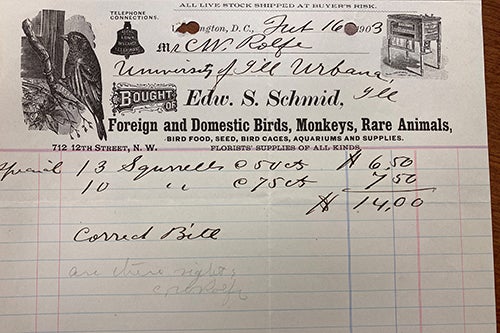 ALL LIVE STOCK SHIPPED AT BUYER'S RISK.
TELEPHONE CONNECTIONS.
ington, D.C., Feb 16 1903
Mr C.W. Rolfe
University of Ill Urbana, Ill
BOUGHT OF Edw. S. Schmid,
Foreign and Domestic Birds, Monkeys, Rare Animals,
BIRD FOOD, SEED, BIRD CAGES, AQUARIUMS AND SUPPLIES.
712 12TH STREET, N. W. FLORISTS' SUPPLIES OF ALL KINDS.
Special 13 Squrrells @ 50cts $ 6.50
10 " @ 75cts 7 50
$ 14.00
Correct Bill
are these right
C W Rolfe